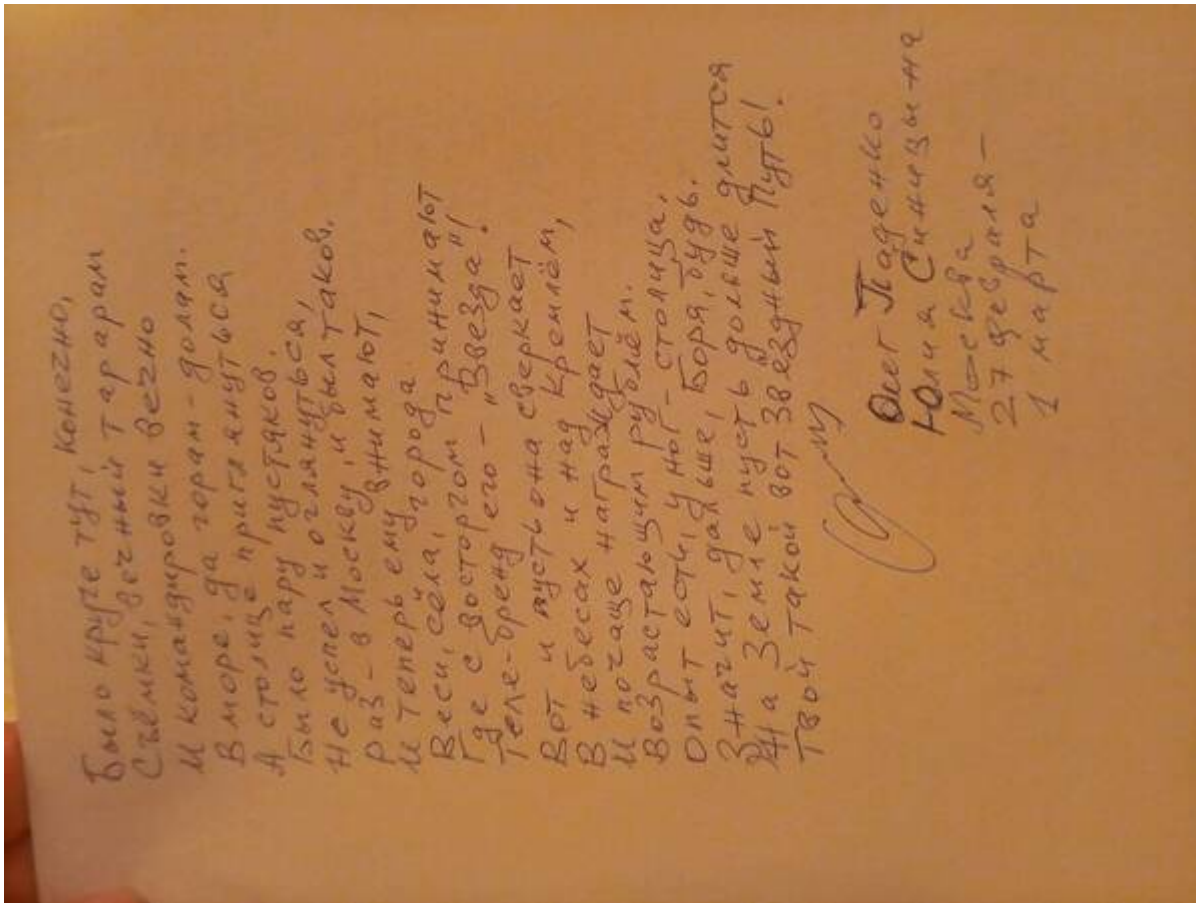 Было круче тут, конечно,
Съёмки, вечный тарарам
И командировки вечно
В море, да горам-долам.
А столице приглянуться
Было пару пустяков.
Не успел и оглянуться,
Раз - в Москву, и был таков.
И теперь ему внимают,
Веси, сёла, города
Где с восторгом принимают
Теле-бренд его - "Звезда"!
Вот и пусть она сверкает
В небесах и над Кремлём,
И почаще награждает
Возрастающим рублём.
Опыт есть, у ног - столица,
Значит, дальше, Боря, будь.
На Земле пусть дольше длится
Твой такой вот Звездный Путь!
Олег Паденко
Юлия Синицына
Москва
27 февраля -
1 марта